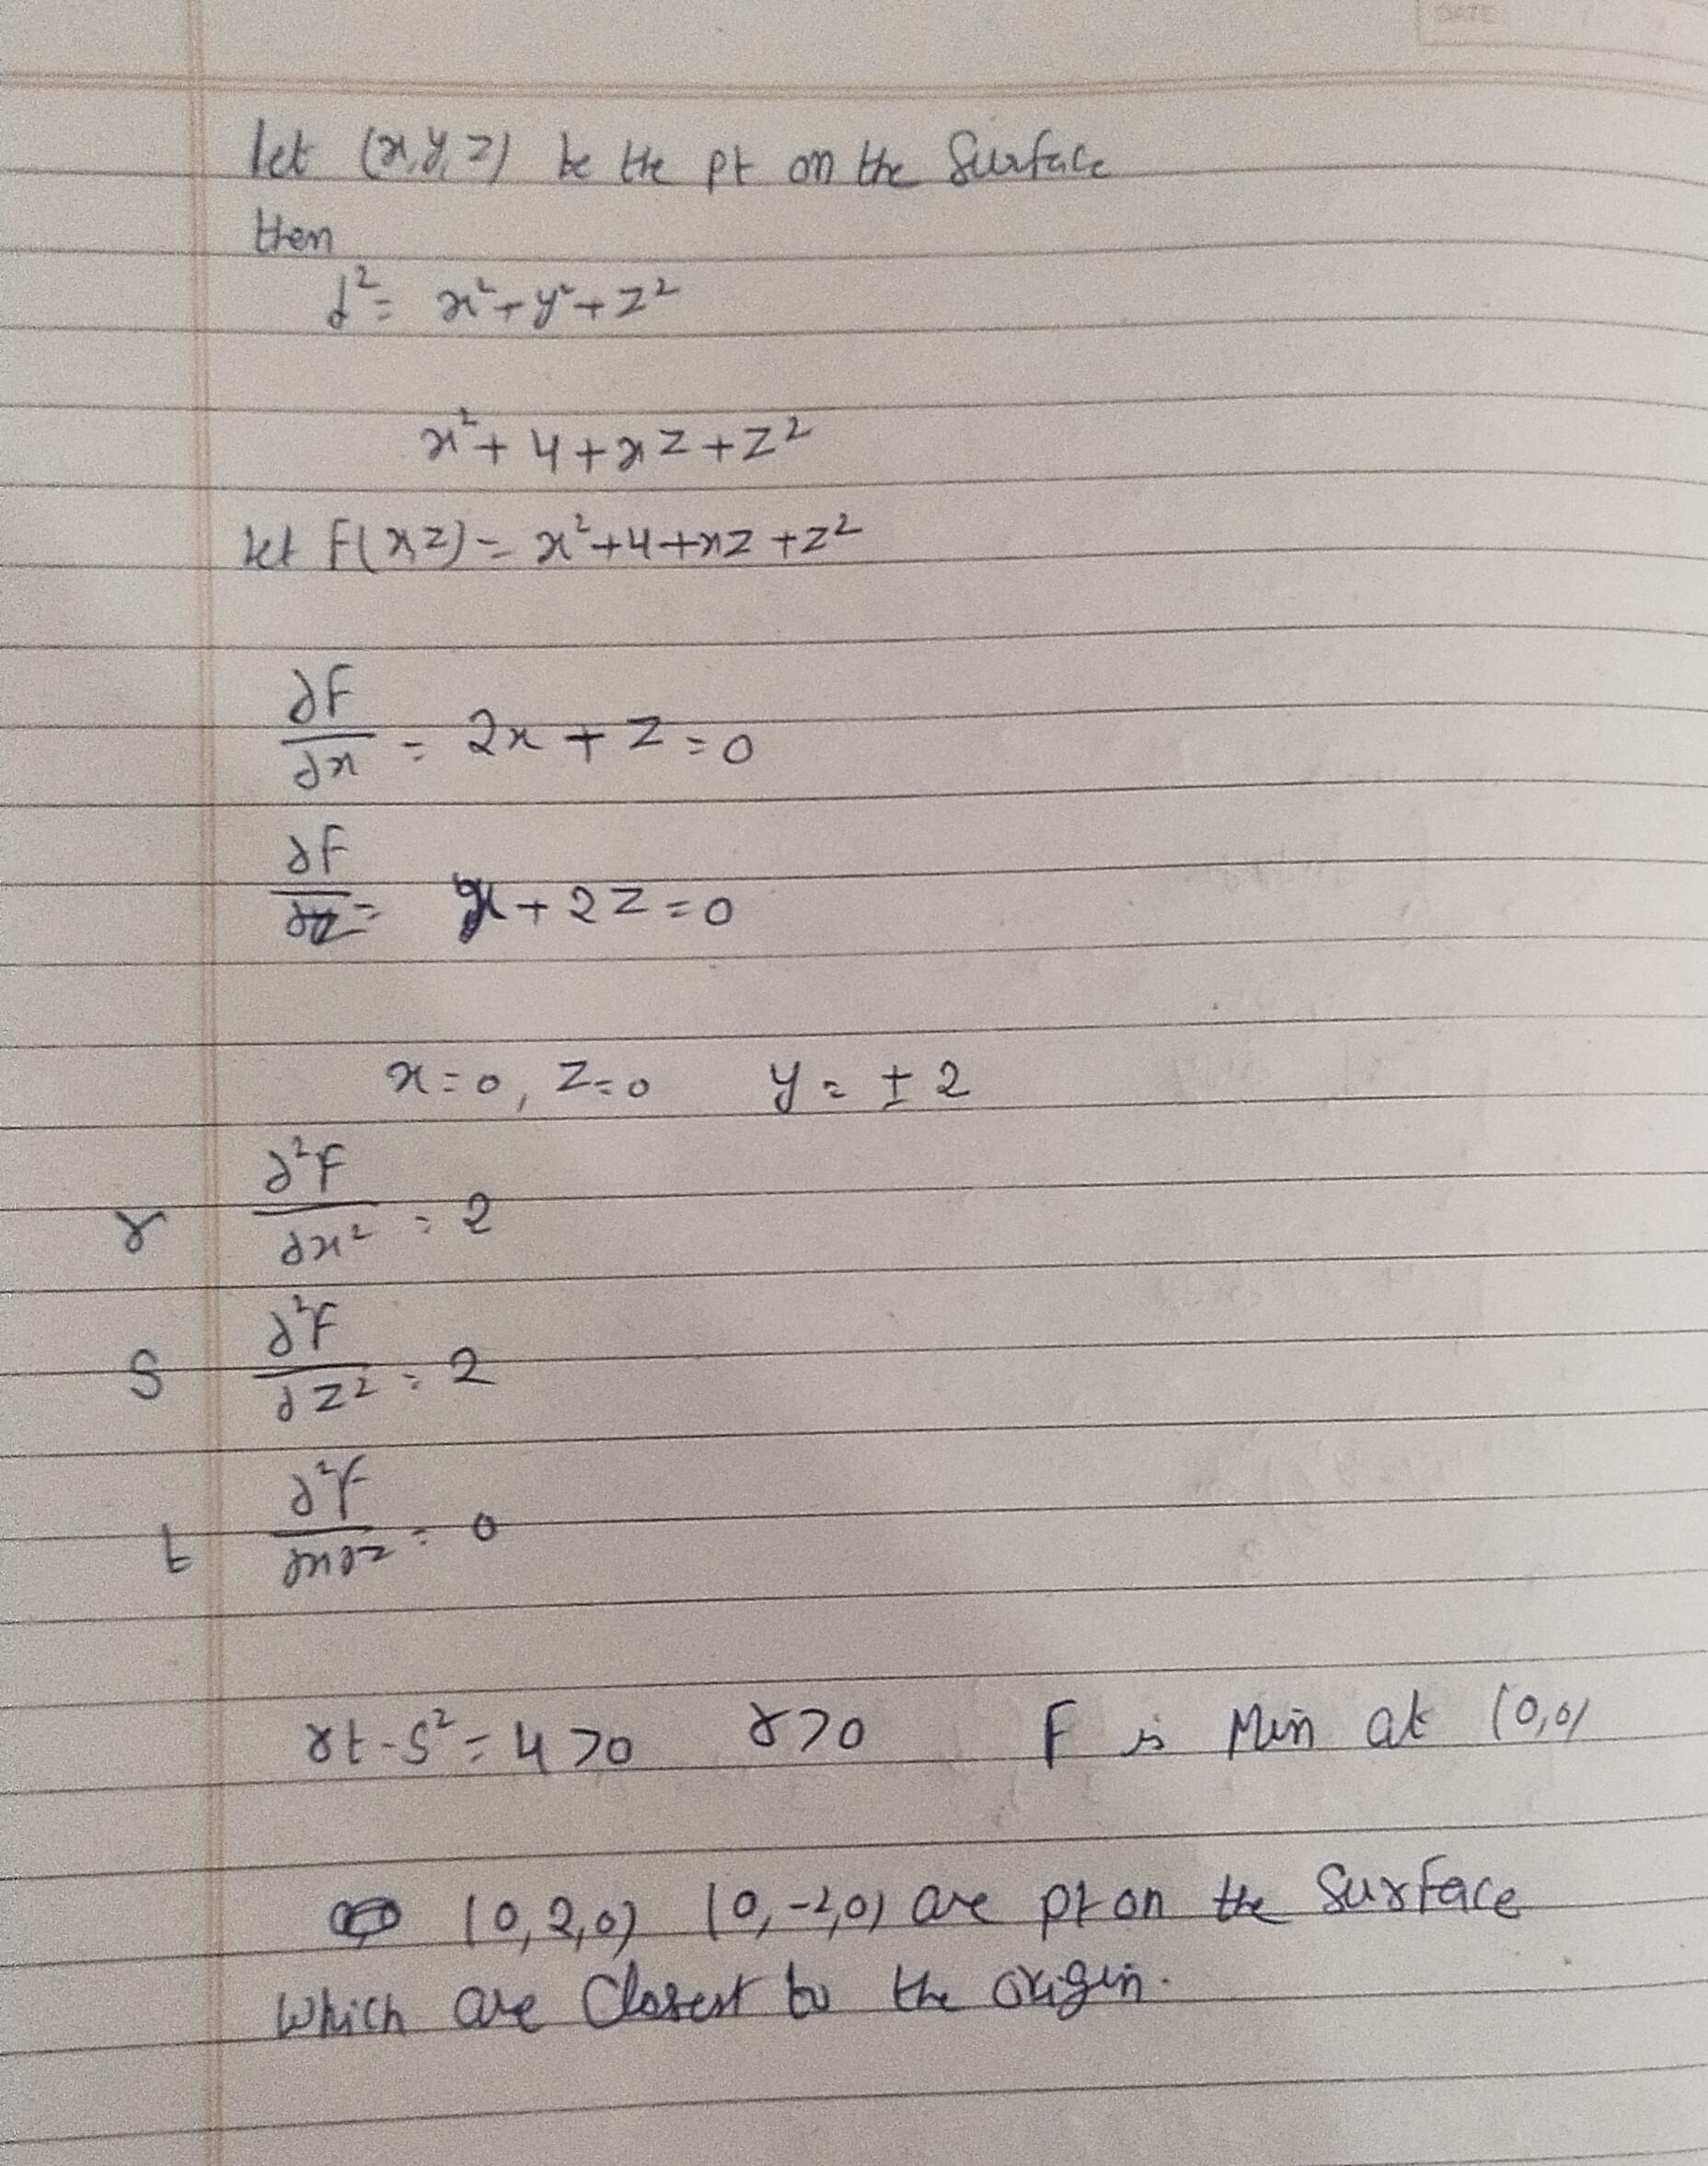 DATE
let (x,y,z) be the pt on the Surface
then
d² = x²+y²+z²
x²+4+xz+z²
let F(x z) = x²+4+xz+z²
∂F/∂x = 2x+z=0
∂F/∂z = x+2z=0
x=0, z=0 y=±2
r ∂²F/∂x² = 2
S ∂²F/∂z² = 2
t ∂²F/∂x∂z = 0
rt-S² = 4>0 r>0 F is Min at (0,0)
(0,2,0) (0,-2,0) are pt on the Surface
which are Closest to the origin.